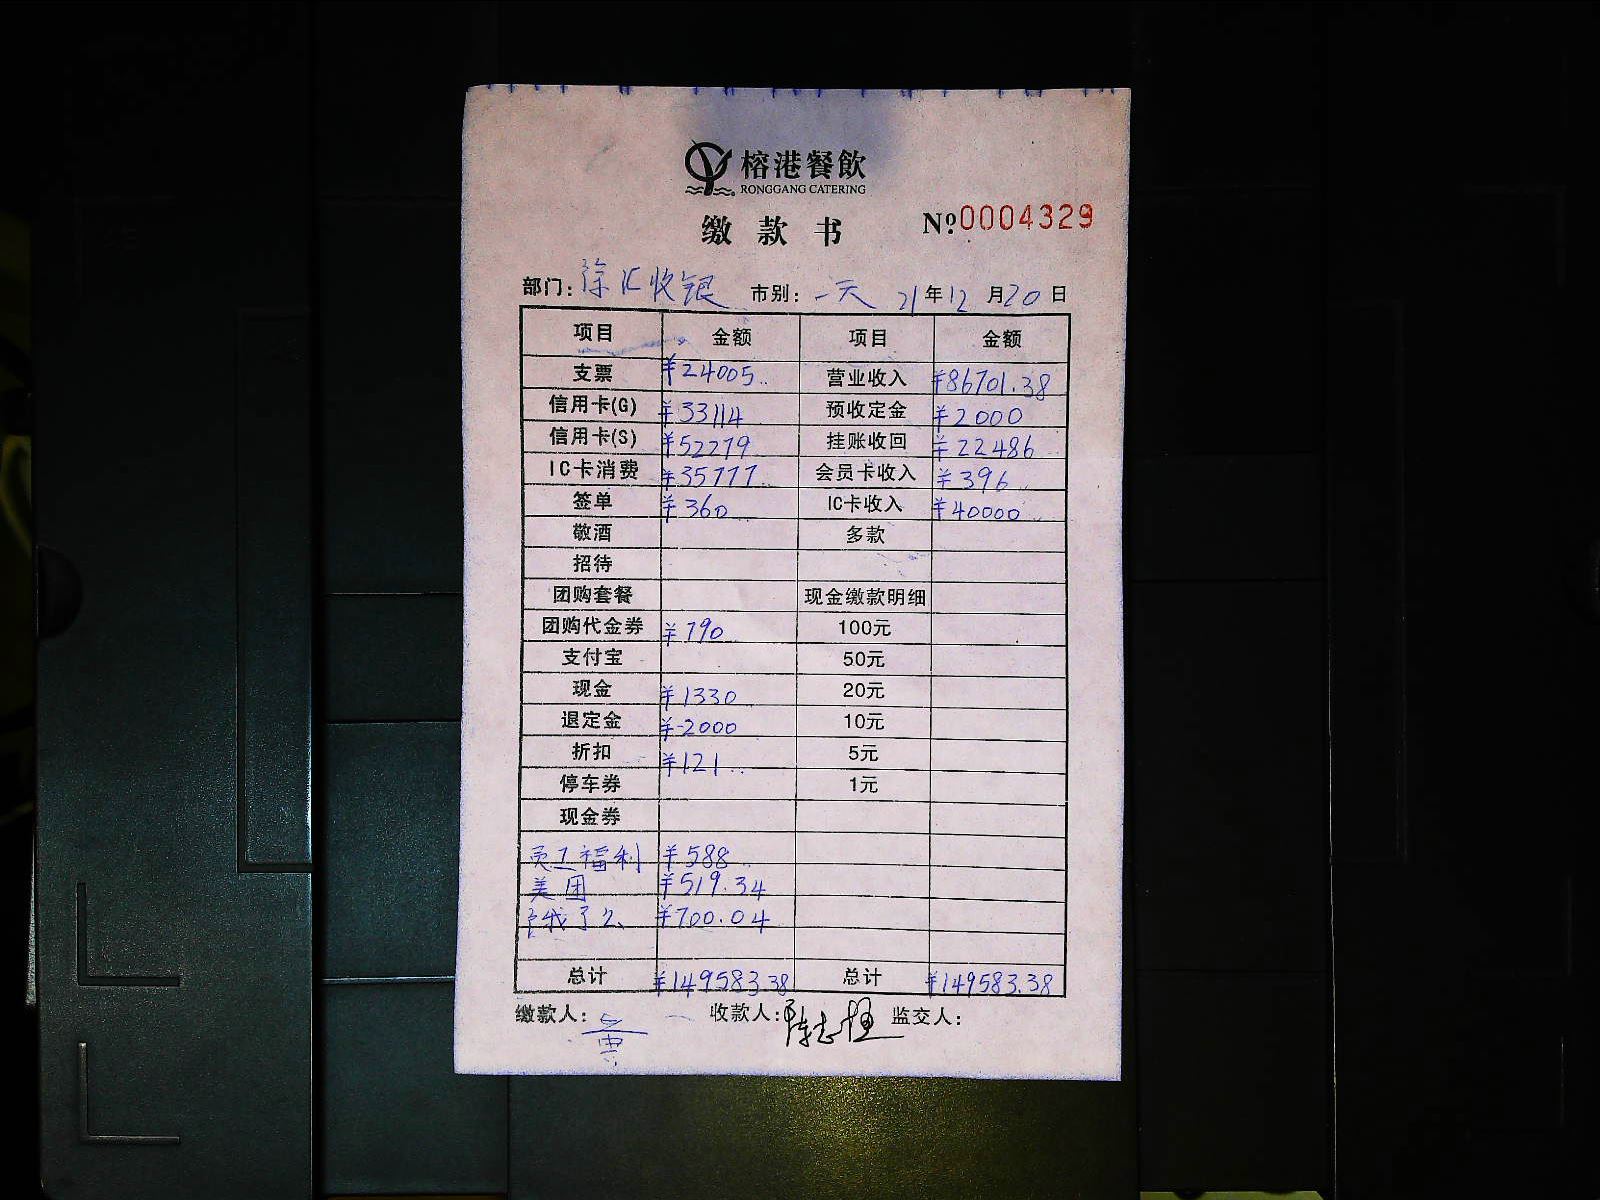 榕港餐飲
RONGGANG CATERING
缴款书 №0004329
部门: 徐汇收银 市别: 一天 21年12月20日
项目 金额 项目 金额
支票 ¥24005 营业收入 ¥86701.38
信用卡(G) ¥33114 预收定金 ¥2000
信用卡(S) ¥52279 挂账收回 ¥22486
IC卡消费 ¥35777 会员卡收入 ¥396
签单 ¥360 IC卡收入 ¥40000
敬酒 多款
招待
团购套餐 现金缴款明细
团购代金券 ¥790 100元
支付宝 50元
现金 ¥1330 20元
退定金 ¥-2000 10元
折扣 ¥121 5元
停车券 1元
现金券
员工福利 ¥588
美团 ¥519.34
饿了么 ¥700.04
总计 ¥149583.38 总计 ¥149583.38
缴款人: 收款人: 陈志恒 监交人: